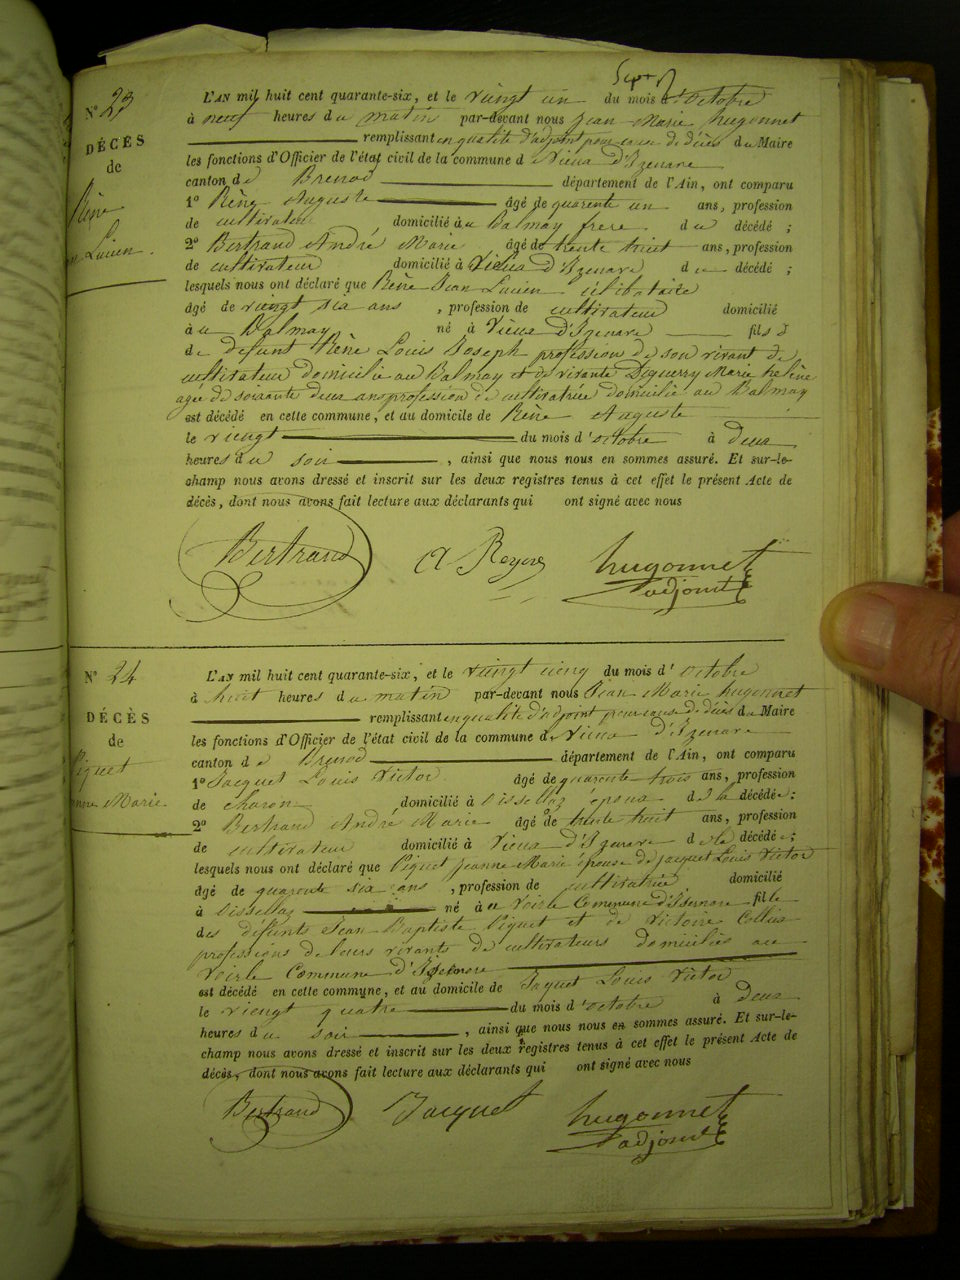 Nº 23
DÉCÈS
de
Rène
Lucien.
L'AN mil huit cent quarante-six, et le vingt un du mois d'octobre
à neuf heures du matin par-devant nous Jean Marie hugonnet
remplissant en qualité d'adjoint pour cause de décès du Maire
les fonctions d'Officier de l'état civil de la commune de Vieux d'Izenave
canton de Brenod département de l'Ain, ont comparu
1º Rène Auguste âgé de quarente un ans, profession
de cultivateur domicilié au Balmay frere du décédé ;
2º Bertrand André Marie âgé de trente huit ans, profession
de cultivateur domicilié à Vieux d'Izenave d décédé ;
lesquels nous ont déclaré que Rène Jean Lucien célibataire
âgé de viengt six ans , profession de cultivateur domicilié
au Balmay né à Vieux d'Izenave fils d
de defunt Rène Louis Joseph profession de son vivant de
cultivateur domicilié au Balmay et de vivante Marie helène
agée de soixante deux ans profession de cultivatrice domicilié au Balmay
est décédé en cette commune, et au domicile de Rène Auguste
le viengt du mois d'octobre à deux
heures du soir , ainsi que nous nous en sommes assuré. Et sur-le-
champ nous avons dressé et inscrit sur les deux registres tenus à cet effet le présent Acte de
décès, dont nous avons fait lecture aux déclarants qui ont signé avec nous
Bertrand hugonnet
adjoint
Nº 24
DÉCÈS
de
Piquet
Marie
L'AN mil huit cent quarante-six, et le vingt cinq du mois d'octobre
à huit heures du matin par-devant nous Jean Marie hugonnet
remplissant en qualité d'adjoint pour cause de décès du Maire
les fonctions d'Officier de l'état civil de la commune de Vieux d'Izenave
canton de Brenod département de l'Ain, ont comparu
1º Jacquet Louis Victor âgé de quarente trois ans, profession
de charon domicilié à époux de la décédée ;
2º Bertrand André Marie âgé de trente huit ans, profession
de cultivateur domicilié à Vieux d'Izenave de la décédée ;
lesquels nous ont déclaré que Piquet Jeanne Marie épouse de jacquet Louis Victor
âgé de quarente six ans , profession de cultivatrice domicilié
à né à Voirle Commune d'Isernore fille
des défunts Jean Baptiste Piquet et de Victoire
professions de leurs vivants de cultivateurs domiciliés au
Voirle Commune
est décédé en cette commune, et au domicile de Jaquet Louis Victor
le viengt quatre du mois d'octobre à deux
heures du soir , ainsi que nous nous en sommes assuré. Et sur-le-
champ nous avons dressé et inscrit sur les deux registres tenus à cet effet le présent Acte de
décès, dont nous avons fait lecture aux déclarants qui ont signé avec nous
Bertrand Jacquet hugonnet
adjoint